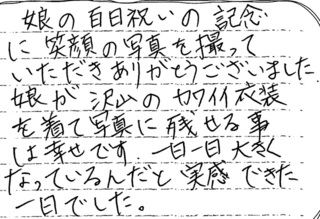 娘の百日祝いの記念
に笑顔の写真を撮って
いただきありがとうございました
娘が沢山のカワイイ衣装
を着て写真に残せる事
は幸せです 一日一日大きく
なっているんだと実感できた
一日でした。